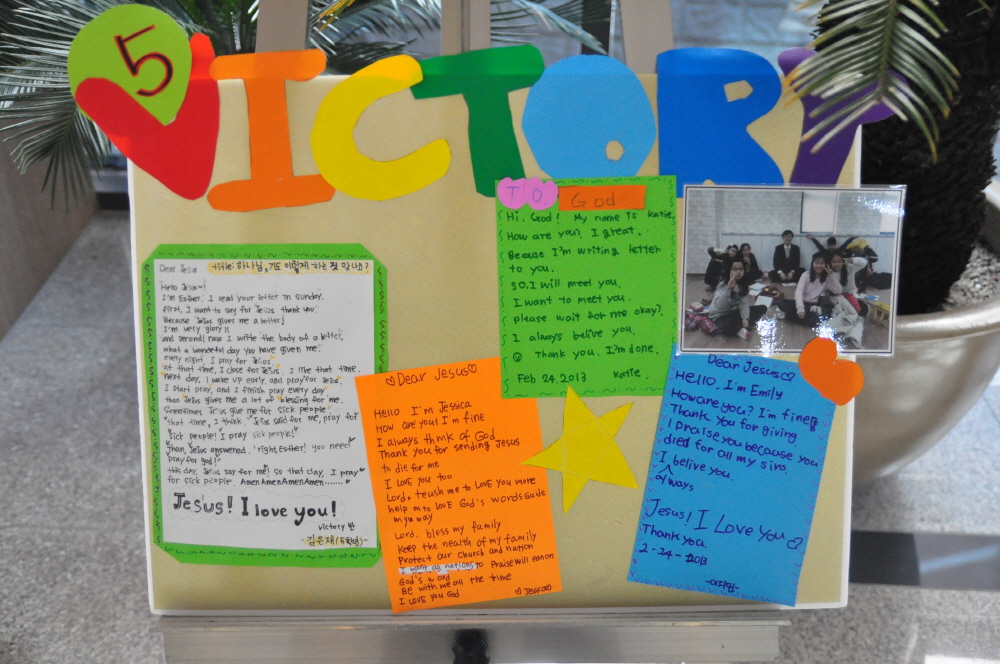 5
VICTORY
Dear Jesus
title: 하나님, 기도 이렇게 하는 것 맞나요?
Hello Jesus~!
I'm Esther. I read your letter in sunday.
First, I want to say for Jesus thank you.
Because Jesus gives me a letter!
I'm very glory!!
and second! now I write the body of a letter.
what a wonderful day you have given me.
every night, I pray for Jesus.
at that time, I close for Jesus. I like that time.
next day, I wake up early, and pray for Jesus
I start pray, and I finish pray every day
than Jesus gives me a lot of blessing for me.
Sometimes Jesus give me for sick people
"that time, I think." Jesus said for me, pray for
sick people! I pray sick people!
than, Jesus answered. "right, Esther! you need
pray for god!"
this day, Jesus say for me! so that day, I pray
for sick people. Amen Amen Amen Amen......
Jesus! I love you!
victory 반
-김은재(5학년)-
Dear Jesus
Hello I'm Jessica
How are you? I'm fine
I always think of God
Thank you for sending Jesus
to die for me
I love you too
Lord. teush me to love you more
help me to love God's words Guide
my way
Lord. bless my family
Keep the health of my family
Protect our church and nation
I want all nations to Praise will ea on
God's word
Be with me all the time
I love you God
Jessica
TO God
Hi, God! My name is Katie.
How are you? I great.
Because I'm writing letter
to you.
so. I will meet you.
I want to meet you.
please wait for me okay?
I always belive you.
Thank you. I'm done.
Feb 24. 2013 Katie.
Dear Jesus
Hello, I'm Emily
How are you? I'm fine
Thank you for giving
I praise you because you
died for all my sins
I belive you.
always
Jesus! I Love you
Thank you.
2-24-2013